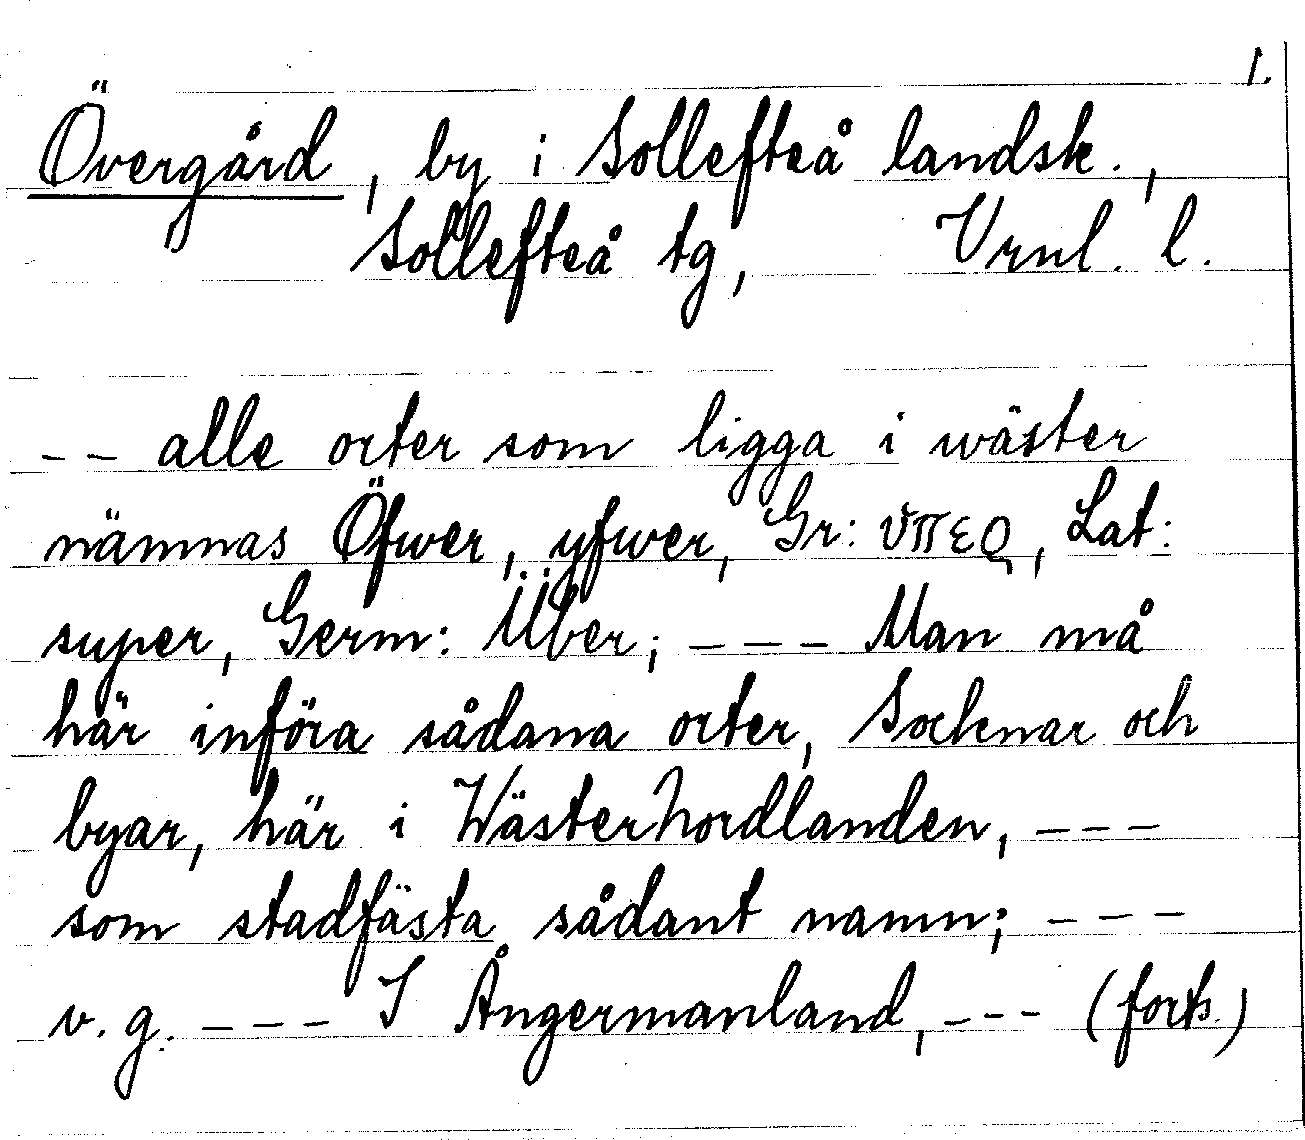 1.
Övergård, by i Sollefteå landsk.,
Sollefteå tg, Vrnl. l.
-- alle orter som ligga i wäster
nämnas Öfwer, yfwer, Gr: ὑπερ, Lat:
super, Germ: Über; --- Man må
här införa sådana orter, Socknar och
byar, här i Wästernordlanden, ---
som stadfästa sådant namn; ---
v. g. --- I Ångermanland, --- (forts.)